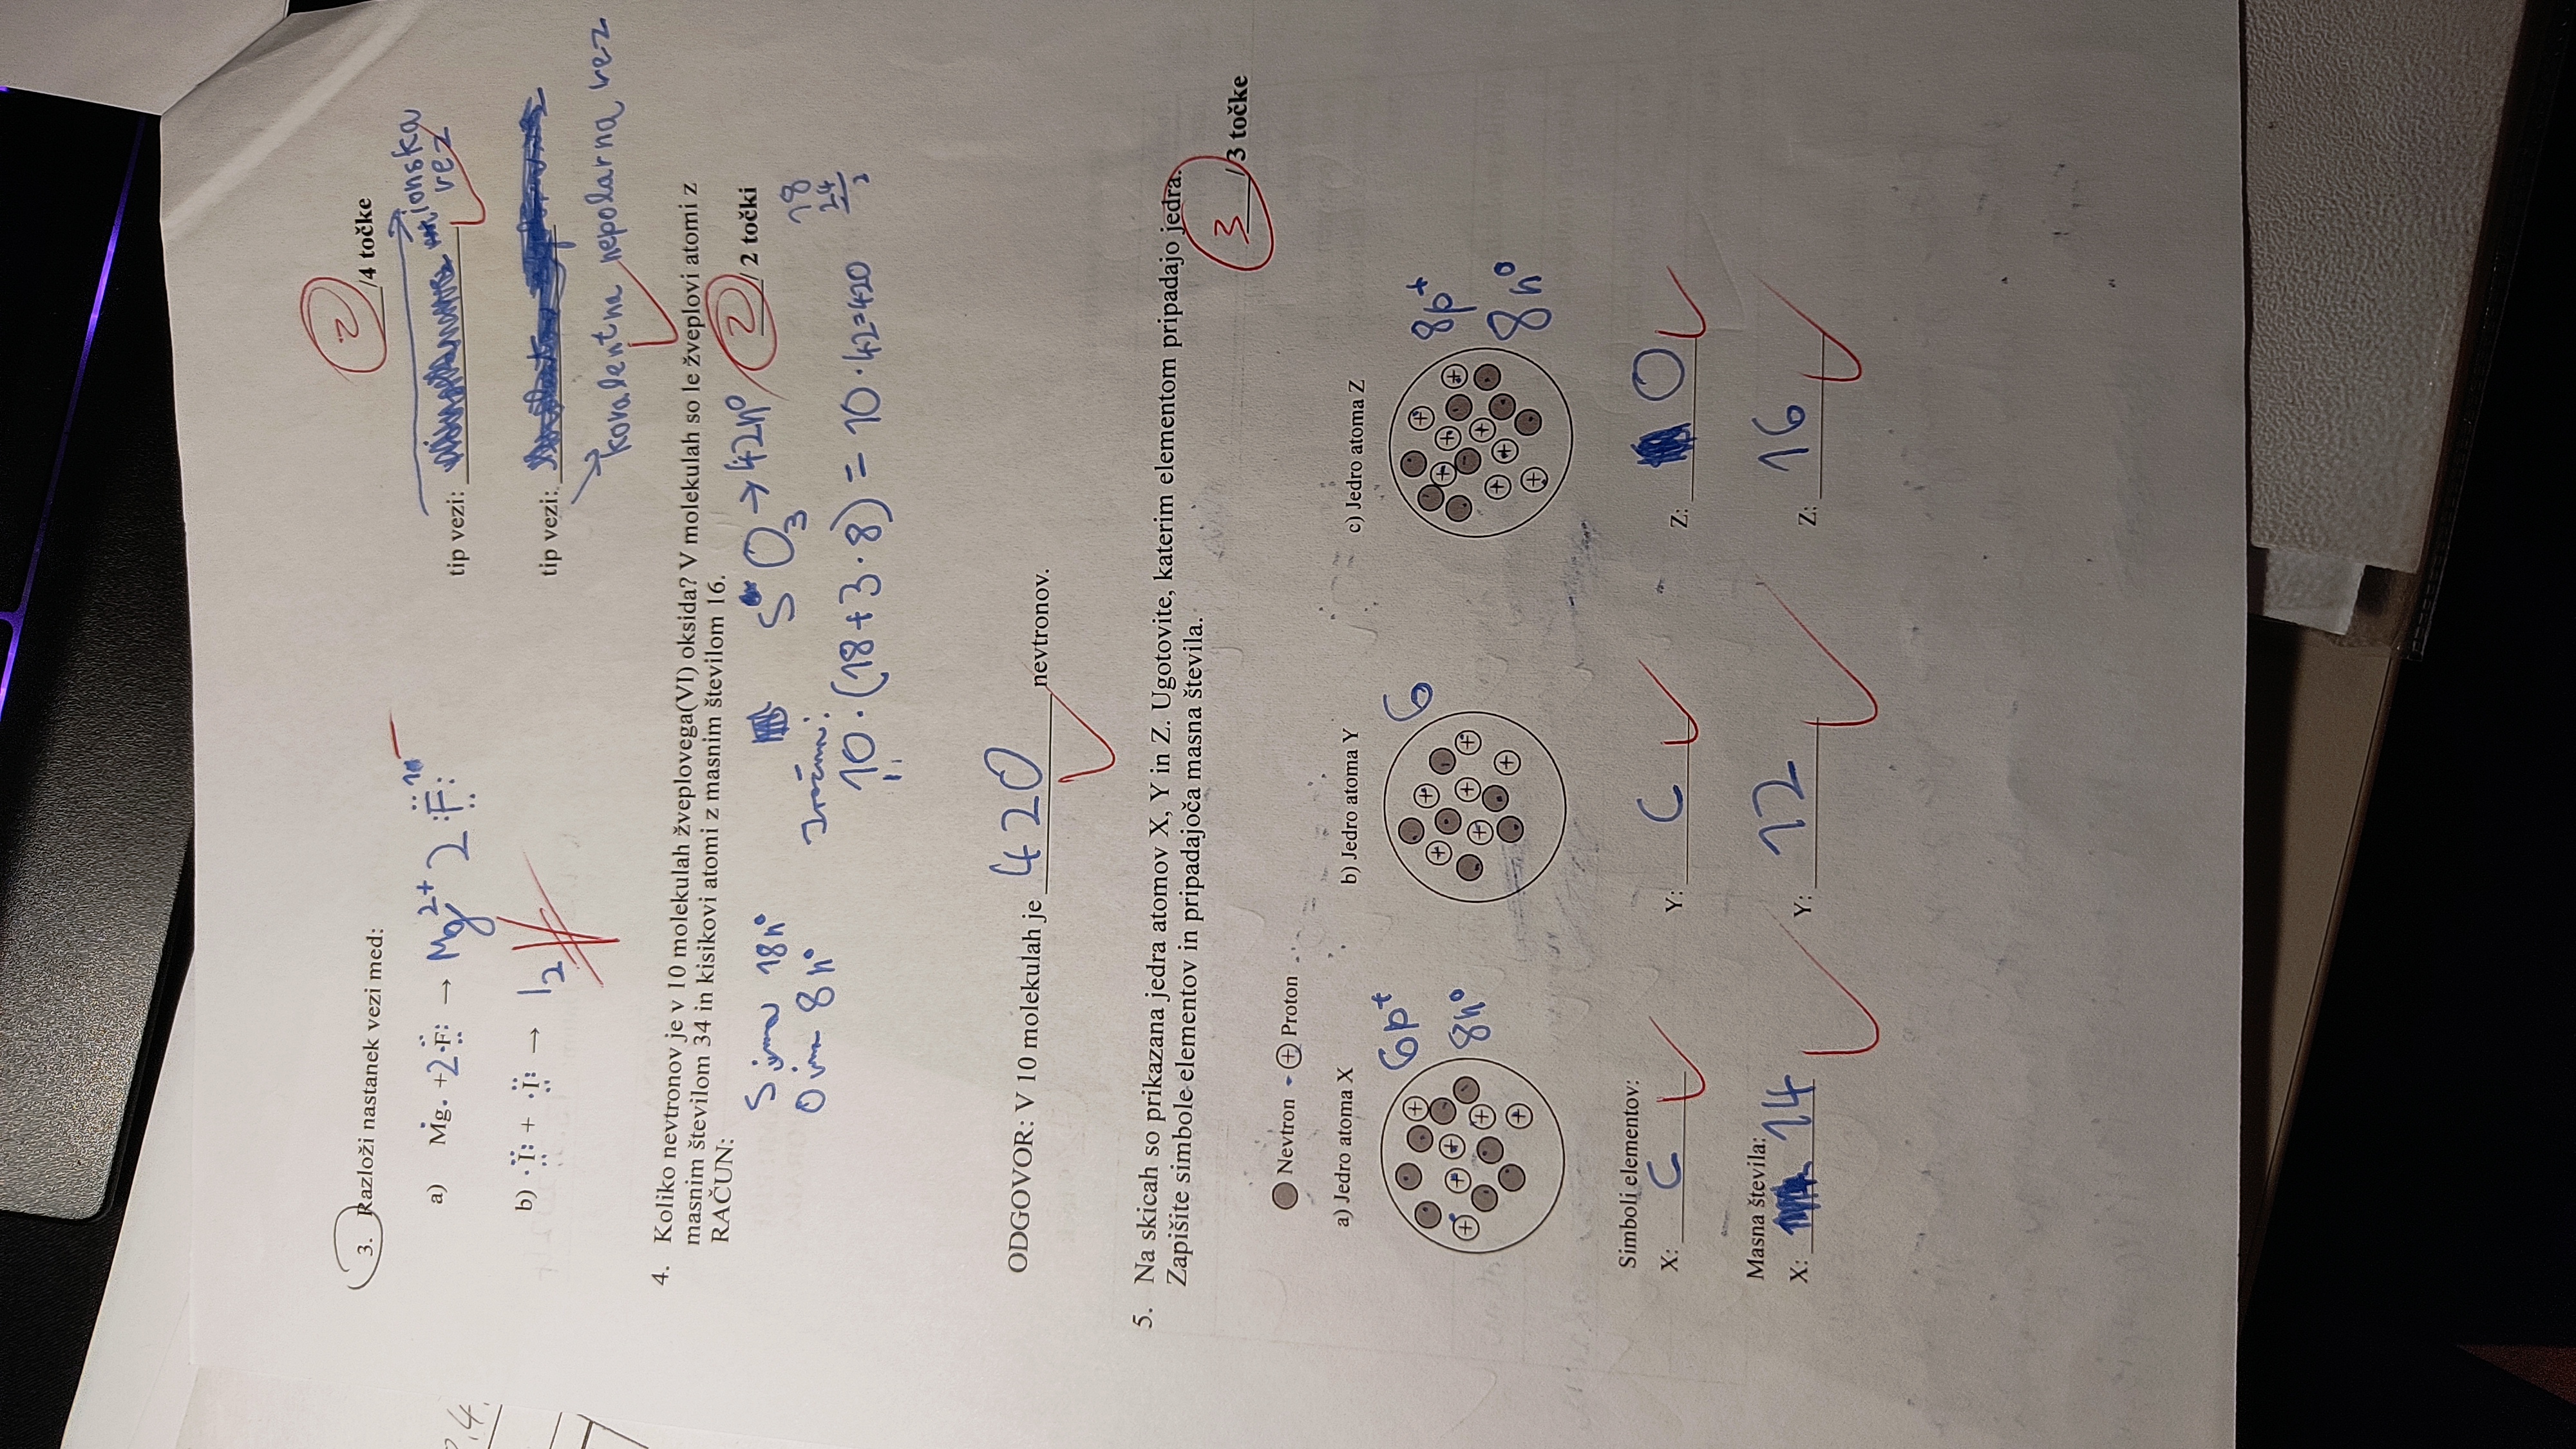 2.4.
2
3. Razloži nastanek vezi med:
/4 točke
a) Mg. + 2 ·F: → Mg²⁺ 2 :F:⁻ tip vezi: ionska
vez
b) ·I: + ·I: → I₂ tip vezi:
kovalentna nepolarna vez
4. Koliko nevtronov je v 10 molekulah žveplovega(VI) oksida? V molekulah so le žveplovi atomi z
masnim številom 34 in kisikovi atomi z masnim številom 16.
RAČUN:
2 / 2 točki
S ima 18n⁰ SO₃ → 42n⁰
O ima 8n⁰ Izračun:
18
24
2
10·(18+3·8) = 10·42=420
ODGOVOR: V 10 molekulah je 420 nevtronov.
5. Na skicah so prikazana jedra atomov X, Y in Z. Ugotovite, katerim elementom pripadajo jedra.
Zapišite simbole elementov in pripadajoča masna števila.
3 /3 točke
Nevtron - + Proton
a) Jedro atoma X b) Jedro atoma Y c) Jedro atoma Z
6p⁺ 6 8p⁺
8n⁰ 8n⁰
Simboli elementov:
X: C Y: C Z: O
Masna števila:
X: 14 Y: 12 Z: 16